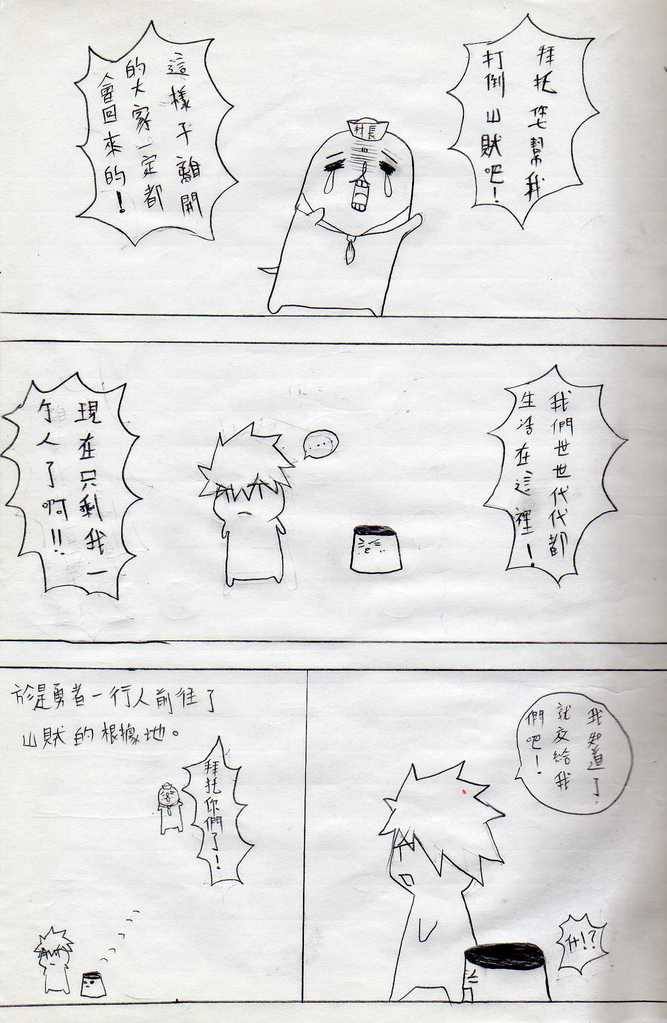 拜托您幫我
打倒山賊吧！
村長
這樣子離開
的大家一定都
會回來的！
我們世世代代都
生活在這裡！
...
現在只剩我一
个人了啊!!
我知道了，
就交給我
們吧！
什!?
於是勇者一行人前往了
山賊的根據地。
拜托你們了！